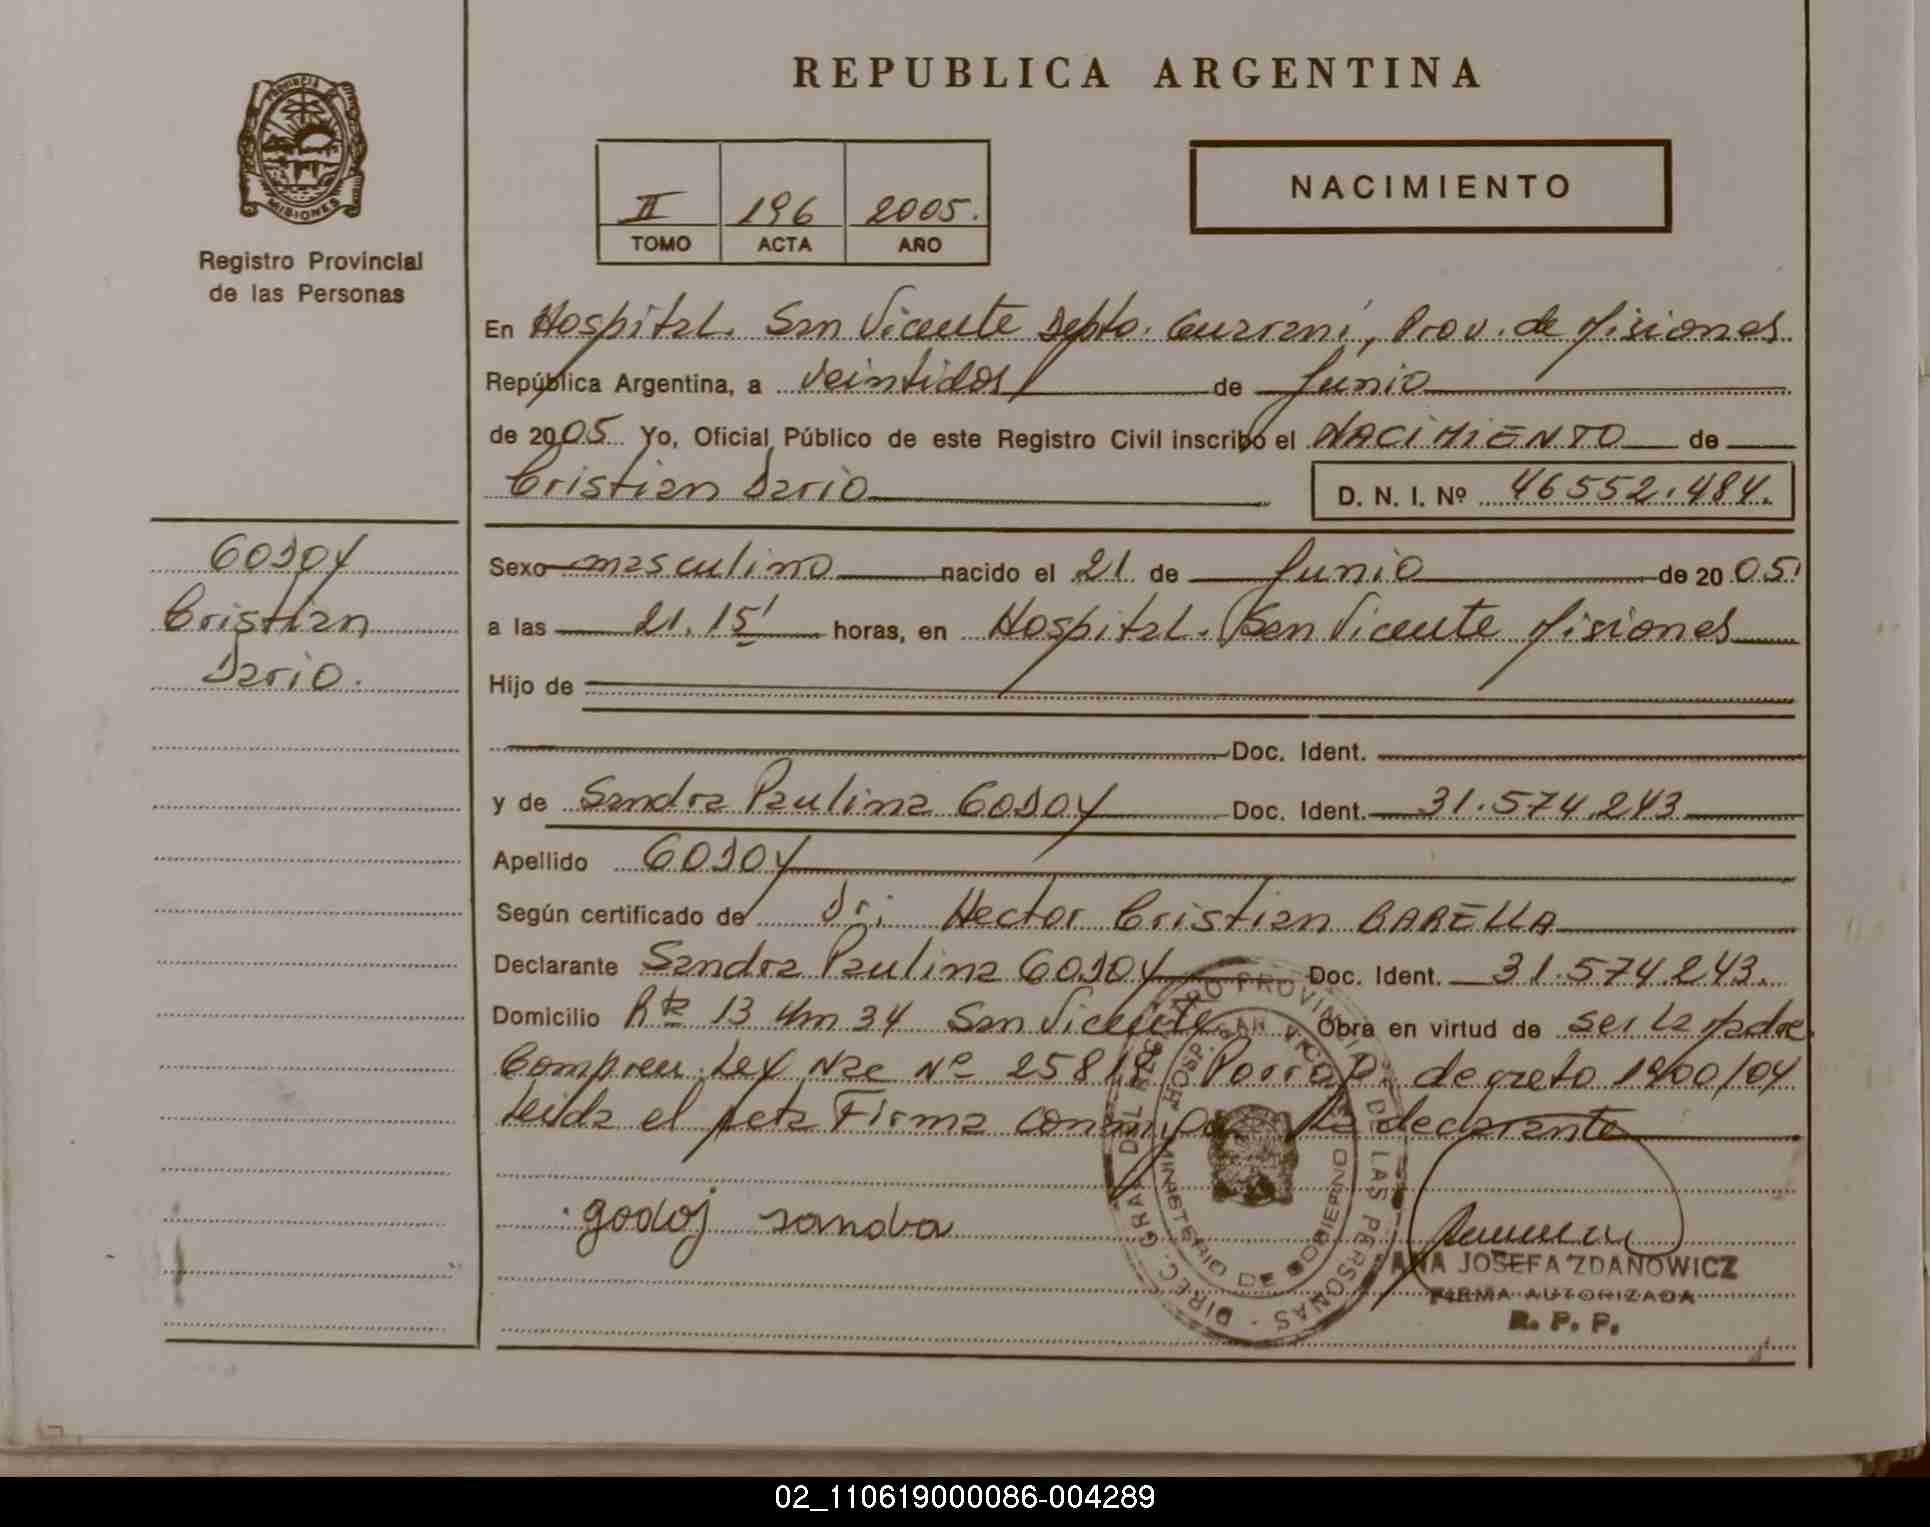 REPUBLICA ARGENTINA
PROVINCIA DE
MISIONES
Registro Provincial
de las Personas
II 196 2005.
TOMO ACTA AÑO
NACIMIENTO
En Hospital. San Vicente Depto. Guarani, Prov. de Misiones
República Argentina, a veintidos de Junio
de 2005 Yo, Oficial Público de este Registro Civil inscribo el NACIMIENTO de
Cristian Dario D. N. I. Nº 46552.484.
GODOY
Cristian
Dario.
Sexo masculino nacido el 21 de Junio de 2005
a las 21.15' horas, en Hospital. San Vicente Misiones
Hijo de
Doc. Ident.
y de Sandra Paulina GODOY Doc. Ident. 31.574.243
Apellido GODOY
Según certificado de Dr: Hector Cristian BARELLA
Declarante Sandra Paulina GODOY Doc. Ident. 31.574.243.
Domicilio Rta 13 Km 34 San Vicente Obra en virtud de ser La Madre
Ley Nac Nº decreto
Leida el Acta Firma conmigo La declarante
godoj sandra
DIREC. GRAL. DEL REGISTRO PROVINCIAL DE LAS PERSONAS
HOSP. SAN VICENTE
MINISTERIO DE GOBIERNO
ANA JOSEFA ZDANOWICZ
FIRMA AUTORIZADA
R. P. P.
02_110619000086-004289